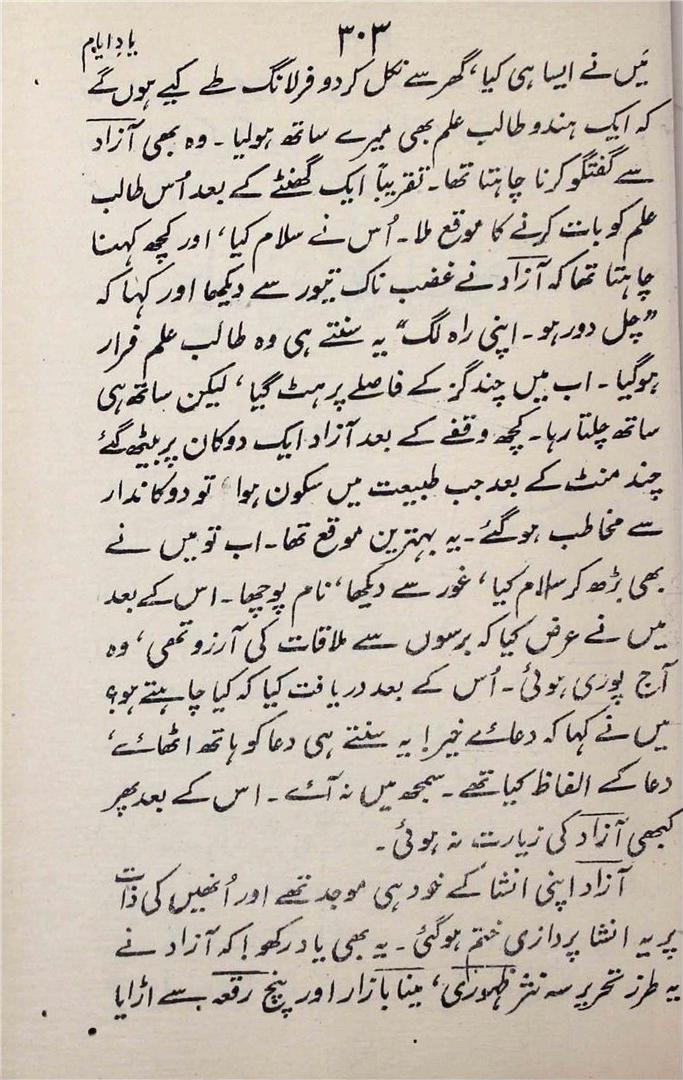 یادِ ایام
۳۰۳
مَیں نے ایسا ہی کیا، گھر سے نکل کر دو فرلانگ طے کیے ہوں گے
کہ ایک ہندو طالب علم بھی میرے ساتھ ہولیا۔ وہ بھی آزاد
سے گفتگو کرنا چاہتا تھا۔ تقریباً ایک گھنٹے کے بعد اُس طالب
علم کو بات کرنے کا موقع ملا۔ اُس نے سلام کیا، اور کچھ کہنا
چاہتا تھا کہ آزاد نے غضب ناک تیور سے دیکھا اور کہا کہ
”چل دور ہو۔ اپنی راہ لگ“ یہ سنتے ہی وہ طالب علم فرار
ہوگیا۔ اب میں چند گز کے فاصلے پر ہٹ گیا، لیکن ساتھ ہی
ساتھ چلتا رہا۔ کچھ وقفے کے بعد آزاد ایک دوکان پر بیٹھ گئے
چند منٹ کے بعد جب طبیعت میں سکون ہوا، تو دوکاندار
سے مخاطب ہوگئے۔ یہ بہترین موقع تھا۔ اب تو میں نے
بھی بڑھ کر سلام کیا، غور سے دیکھا، نام پوچھا۔ اس کے بعد
میں نے عرض کیا کہ برسوں سے ملاقات کی آرزو تھی، وہ
آج پوری ہوئی۔ اُس کے بعد دریافت کیا کہ کیا چاہتے ہو؟
میں نے کہا کہ دعائے خیر! یہ سنتے ہی دعا کو ہاتھ اٹھائے،
دعا کے الفاظ کیا تھے۔ سمجھ میں نہ آئے۔ اس کے بعد پھر
کبھی آزاد کی زیارت نہ ہوئی۔
آزاد اپنی انشا کے خود ہی موجد تھے اور اُنھیں کی ذات
پر یہ انشا پردازی ختم ہوگئی۔ یہ بھی یاد رکھو! کہ آزاد نے
یہ طرز تحریر سہ نثر ظہوری، مینا بازار اور پنج رقعہ سے اڑایا